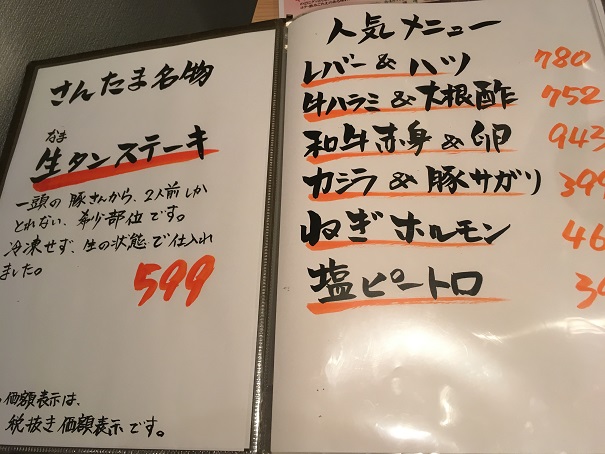 さんたま名物
なま
生タンステーキ
一頭の豚さんから、2人前しか
とれない、希少部位です。
冷凍せず、生の状態で仕入れ
ました。
599
価額表示は、
税抜き価額表示です。
人気メニュー
レバー&ハツ 780
牛ハラミ&大根酢 752
和牛赤身&卵 943
カシラ&豚サガリ 399
ねぎホルモン 46
塩ピートロ 39